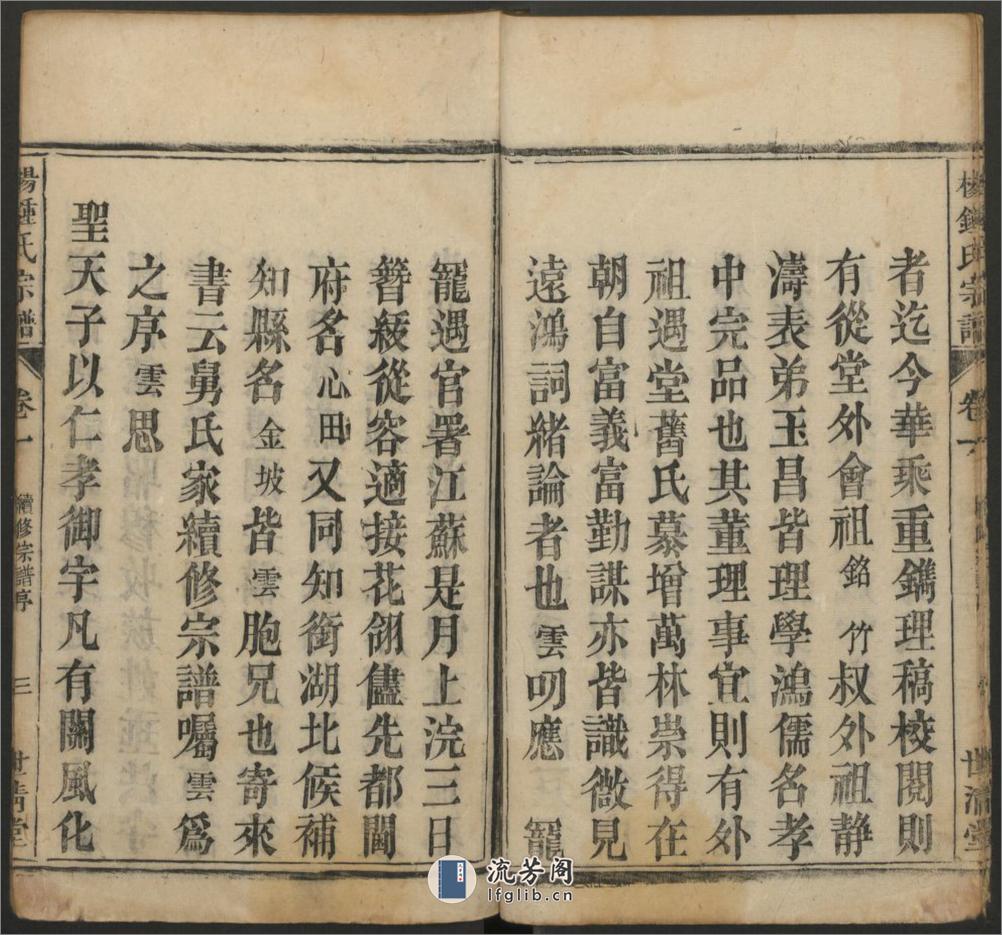 者迄今華乘重鐫理稿校閱則
有從堂外曾祖銘竹叔外祖靜
濤表弟玉昌皆理學鴻儒名孝
中完品也其董理事宜則有外
祖遇堂舊氏慕增萬林崇得在
朝自富義富勤謀亦皆識微見
遠鴻詞緒論者也雲叨應 寵
寵遇官署江蘇是月上浣三日
簪紱從容適接花翎儘先都閫
府名心田又同知銜湖北候補
知縣名金坡皆雲胞兄也寄來
書云舅氏家續修宗譜囑雲爲
之序雲思
聖天子以仁孝御宇凡有關風化
楊鍾氏宗譜 卷一 續修宗譜序 三 世清堂
流芳阁
lfglib.cn